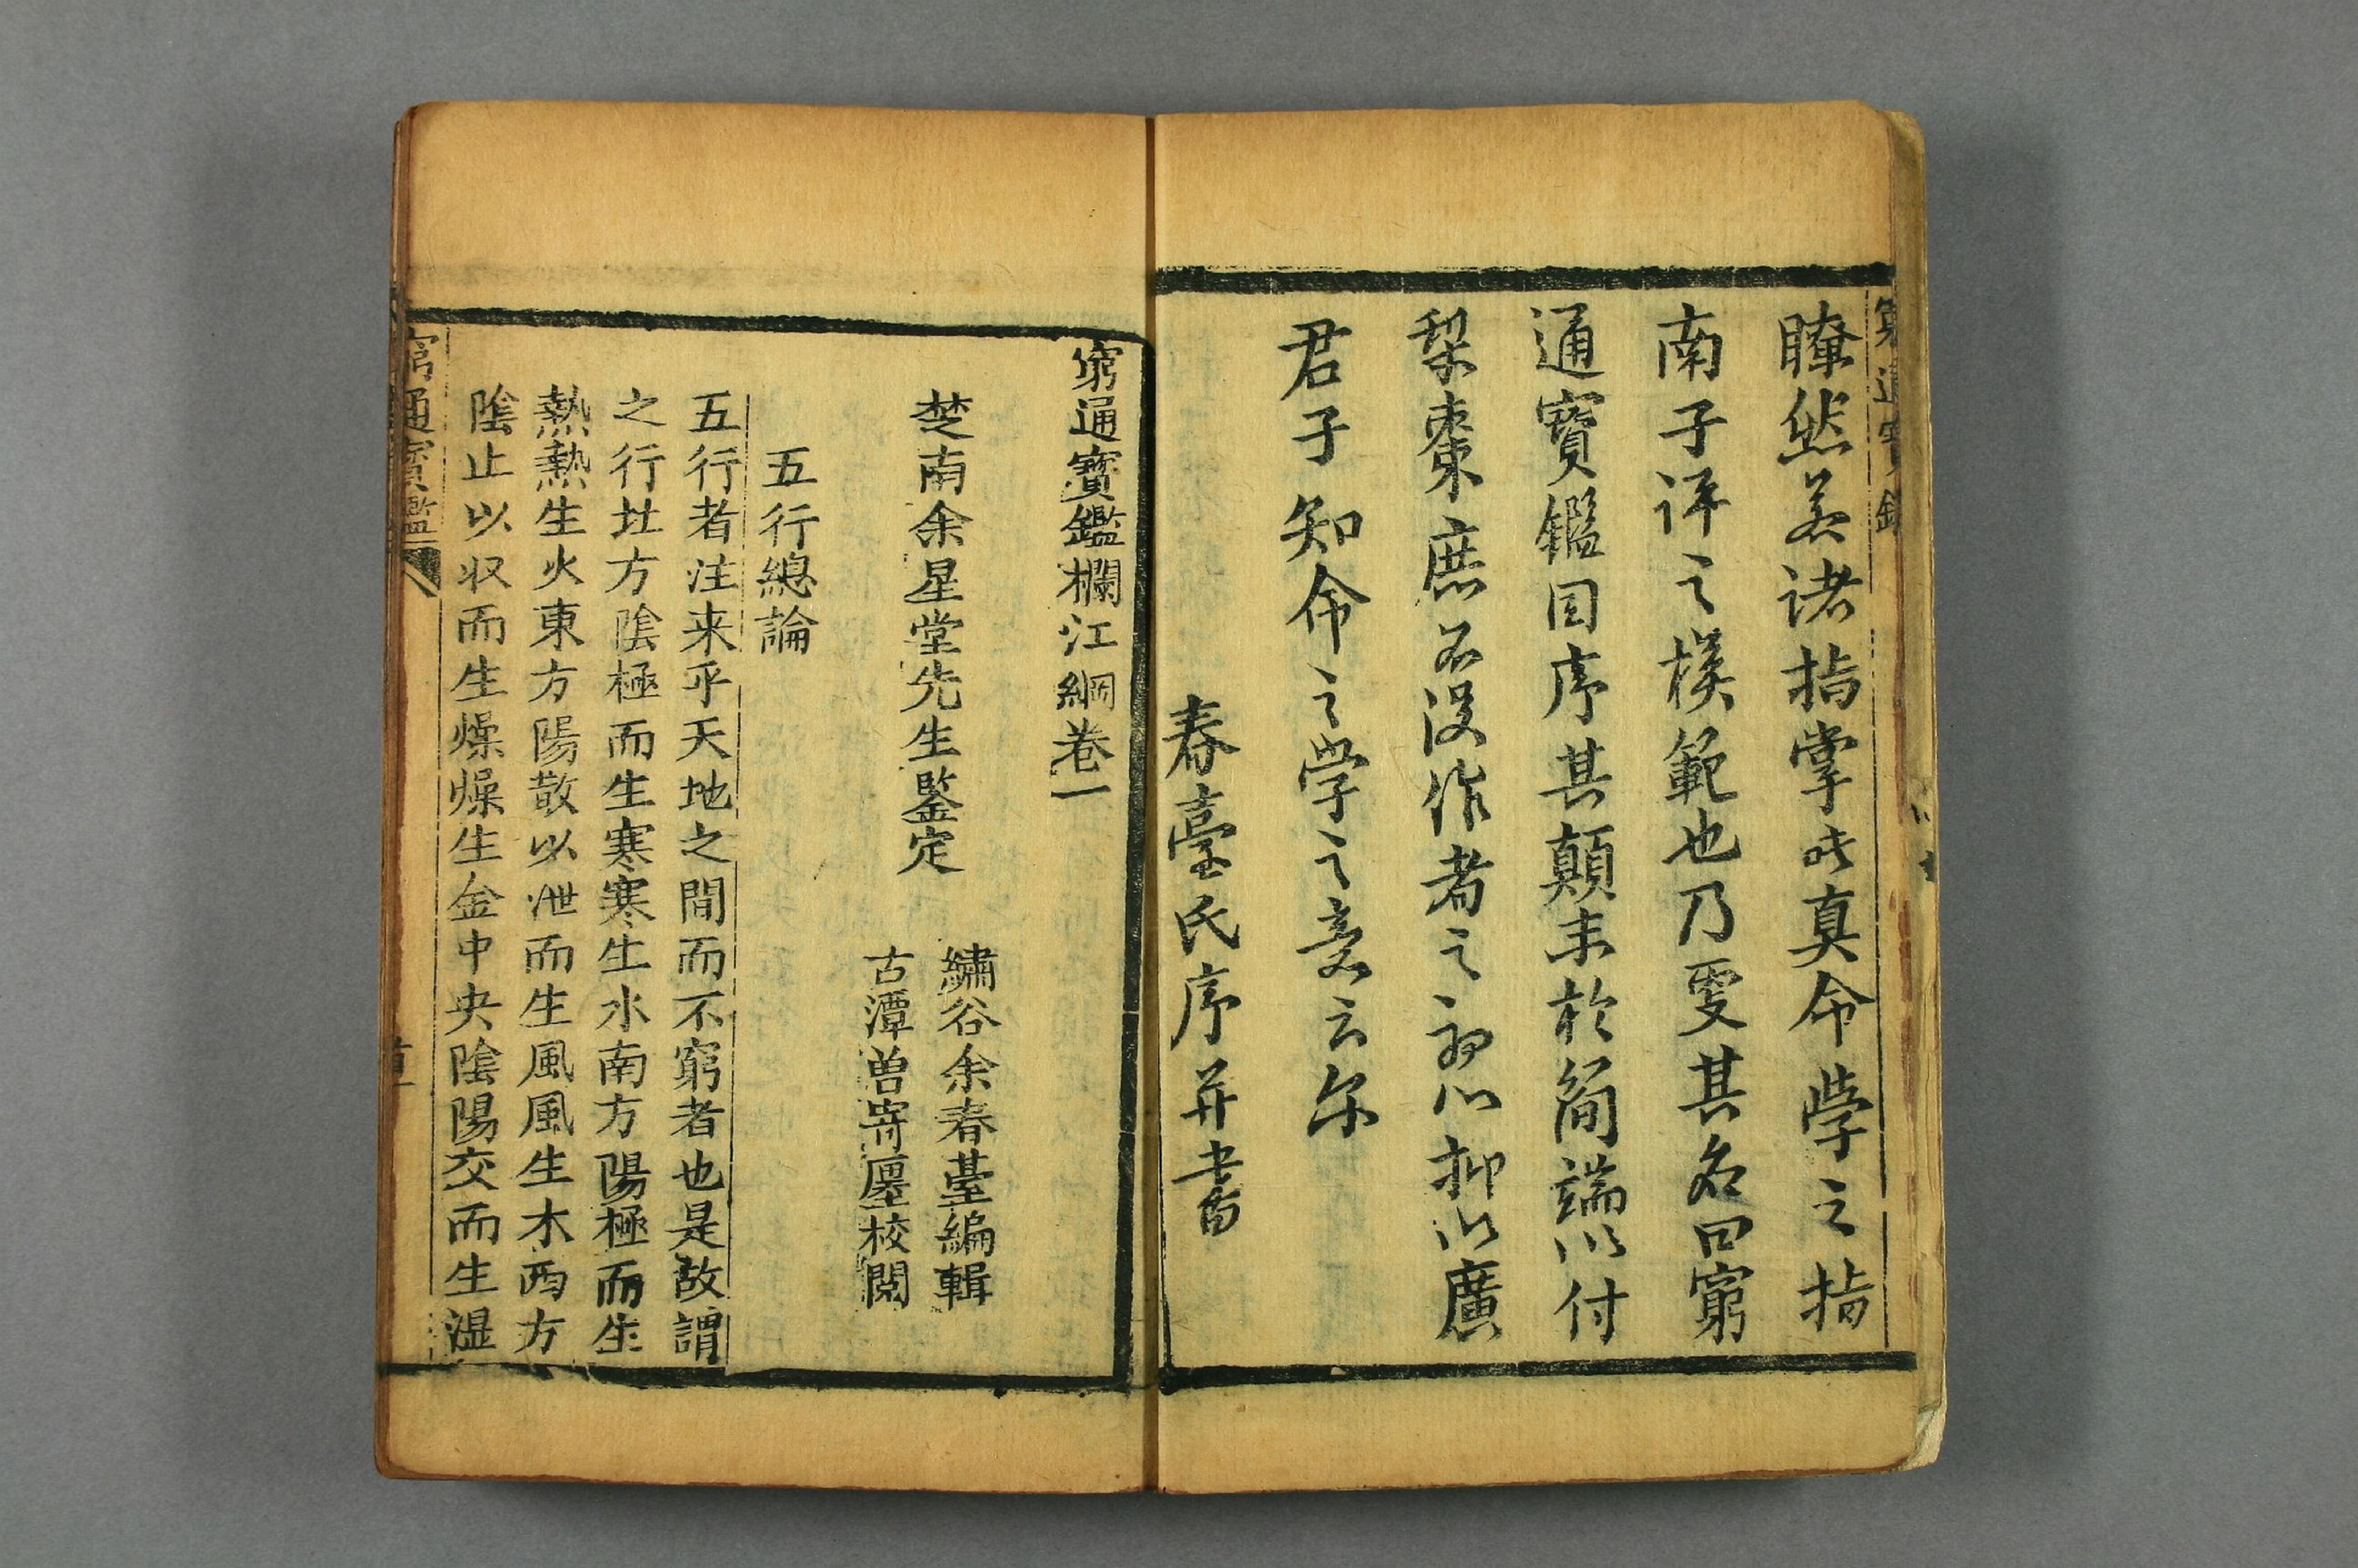 窮通寶鑑
瞭然若諸指掌此真命學之指
南子評之模範也乃更其名曰窮
通寶鑑因序其顛末於簡端以付
梨棗庶不没作者之初心抑以廣
君子知命之學之意云尔
春臺氏序并書
窮通寶鑑欄江綱卷一
楚南余星堂先生鑒定
繡谷余春臺編輯
古潭曽寄廛校閲
五行總論
五行者注来乎天地之間而不窮者也是故謂
之行北方隂極而生寒寒生水南方陽極而生
熱熱生火東方陽散以泄而生風風生木西方
隂止以収而生燥燥生金中央隂陽交而生湿
窮通寶鑑